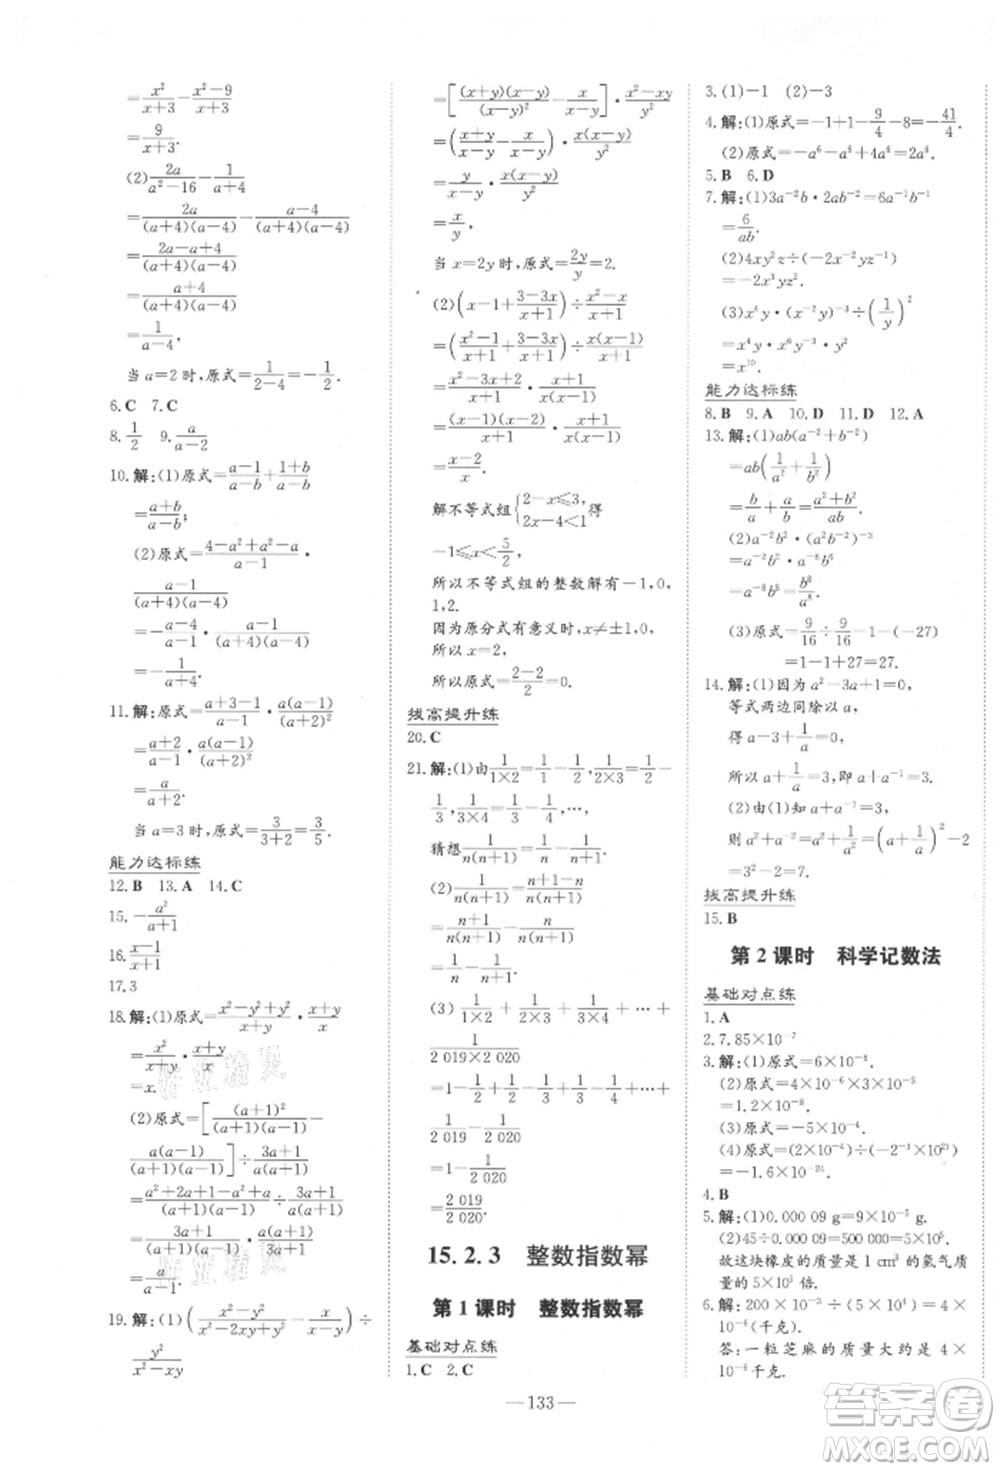 =x²/(x+3)−(x²−9)/(x+3)
=9/(x+3).
(2)2a/(a²−16)−1/(a+4)
=2a/((a+4)(a−4))−(a−4)/((a+4)(a−4))
=(2a−a+4)/((a+4)(a−4))
=(a+4)/((a+4)(a−4))
=1/(a−4).
当 a=2 时,原式=1/(2−4)=−1/2.
6.C 7.C
8.1/2 9.a/(a−2)
10.解:(1)原式=(a−1)/(a−b)+(1+b)/(a−b)
=(a+b)/(a−b);
(2)原式=(4−a²+a²−a)/(a−1)·
(a−1)/((a+4)(a−4))
=−(a−4)/(a−1)·(a−1)/((a+4)(a−4))
=−1/(a+4).
11.解:原式=(a+3−1)/(a−1)·a(a−1)/(a+2)²
=(a+2)/(a−1)·a(a−1)/(a+2)²
=a/(a+2).
当 a=3 时,原式=3/(3+2)=3/5.
能力达标练
12.B 13.A 14.C
15.−a²/(a+1)
16.(x−1)/x
17.3
18.解:(1)原式=(x²−y²+y²)/(x+y)·(x+y)/x
=x²/(x+y)·(x+y)/x
=x.
(2)原式=[(a+1)²/((a+1)(a−1))−
a(a−1)/((a+1)(a−1))]÷(3a+1)/(a(a+1))
=(a²+2a+1−a²+a)/((a+1)(a−1))·a(a+1)/(3a+1)
=(3a+1)/((a+1)(a−1))·a(a+1)/(3a+1)
=a/(a−1).
19.解:(1)((x²−y²)/(x²−2xy+y²)−x/(x−y))÷
y²/(x²−xy)
=[(x+y)(x−y)/(x−y)²−x/(x−y)]·(x²−xy)/y²
=((x+y)/(x−y)−x/(x−y))·x(x−y)/y²
=y/(x−y)·x(x−y)/y²
=x/y.
当 x=2y 时,原式=2y/y=2.
(2)(x−1+(3−3x)/(x+1))÷(x²−x)/(x+1)
=((x²−1)/(x+1)+(3−3x)/(x+1))÷x(x−1)/(x+1)
=(x²−3x+2)/(x+1)·(x+1)/(x(x−1))
=(x−1)(x−2)/(x+1)·(x+1)/(x(x−1))
=(x−2)/x.
解不等式组{2−x≤3, 2x−4<1 得
−1≤x<5/2,
所以不等式组的整数解有−1,0,
1,2.
因为原分式有意义时,x≠±1,0,
所以 x=2,
所以原式=(2−2)/2=0.
拔高提升练
20.C
21.解:(1)由1/(1×2)=1/1−1/2,1/(2×3)=1/2−
1/3,1/(3×4)=1/3−1/4,…,
猜想1/(n(n+1))=1/n−1/(n+1).
(2)1/(n(n+1))=(n+1−n)/(n(n+1))
=(n+1)/(n(n+1))−n/(n(n+1))
=1/n−1/(n+1).
(3)1/(1×2)+1/(2×3)+1/(3×4)+…+
1/(2 019×2 020)
=1−1/2+1/2−1/3+1/3−1/4+…+
1/2 019−1/2 020
=1−1/2 020
=2 019/2 020.
15.2.3 整数指数幂
第1课时 整数指数幂
基础对点练
1.C 2.C
3.(1)−1 (2)−3
4.解:(1)原式=−1+1−9/4−8=−41/4.
(2)原式=−a⁶−a⁶+4a⁶=2a⁶.
5.B 6.D
7.解:(1)3a⁻²b·2ab⁻²=6a⁻¹b⁻¹
=6/(ab).
(2)4xy²z÷(−2x⁻²yz⁻¹)
=−2x³yz².
(3)x⁴y·(x⁻²y)⁻³÷(1/y)²
=x⁴y·x⁶y⁻³·y²
=x¹⁰.
能力达标练
8.B 9.A 10.D 11.D 12.A
13.解:(1)ab(a⁻²+b⁻²)
=ab(1/a²+1/b²)
=b/a+a/b=(a²+b²)/(ab).
(2)a⁻²b²·(a²b⁻²)⁻³
=a⁻²b²·a⁻⁶b⁶
=a⁻⁸b⁸=b⁸/a⁸.
(3)原式=9/16÷9/16−1−(−27)
=1−1+27=27.
14.解:(1)因为 a²−3a+1=0,
等式两边同除以 a,
得 a−3+1/a=0,
所以 a+1/a=3,即 a+a⁻¹=3.
(2)由(1)知 a+a⁻¹=3,
则 a²+a⁻²=a²+1/a²=(a+1/a)²−2
=3²−2=7.
拔高提升练
15.B
第2课时 科学记数法
基础对点练
1.A
2.7.85×10⁻⁷
3.解:(1)原式=6×10⁻⁴.
(2)原式=4×10⁻⁶×3×10⁻³
=1.2×10⁻⁸.
(3)原式=−5×10⁻⁷.
4.B
5.解:(1)0.000 09 g=9×10⁻⁵ g.
(2)45÷0.000 09=500 000=5×10⁵.
故这块橡皮的质量是 1 cm³ 的氢气质
量的 5×10⁵ 倍.
6.解:200×10⁻³÷50 000=4×
10⁻⁶(千克).
答:一粒芝麻的质量大约是 4×10⁻⁶
千克.
—133—
答案圈
MXQE.COM